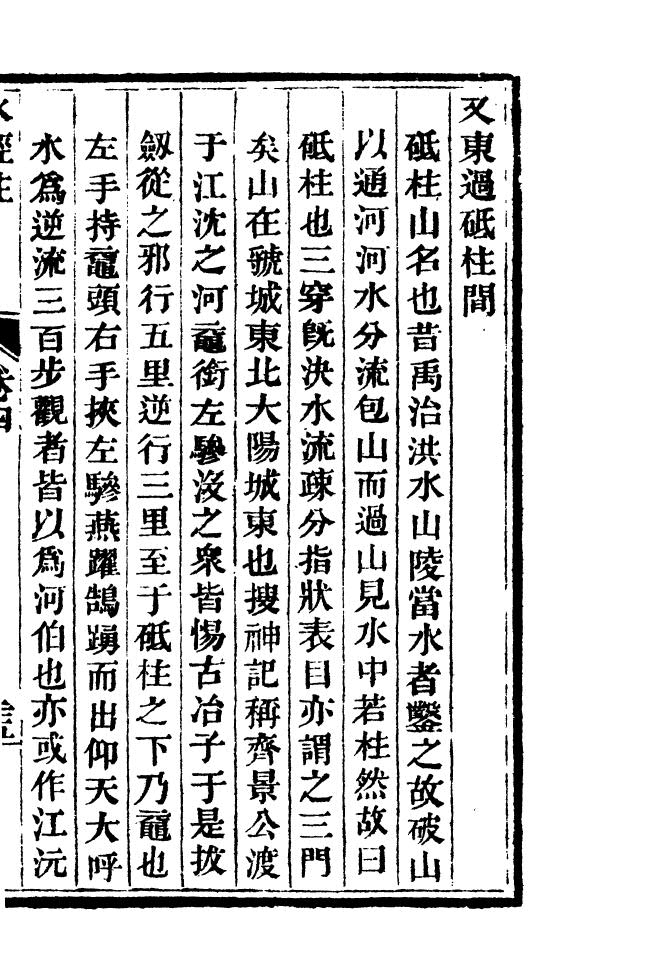 又東過砥柱間
砥柱山名也昔禹治洪水山陵當水者鑿之故破山
以通河河水分流包山而過山見水中若柱然故曰
砥柱也三穿旣決水流疎分指狀表目亦謂之三門
矣山在虢城東北大陽城東也搜神記稱齊景公渡
于江沈之河黿銜左驂沒之衆皆惕古冶子于是拔
劔從之邪行五里逆行三里至于砥柱之下乃黿也
左手持黿頭右手挾左驂燕躍鵠踴而出仰天大呼
水爲逆流三百步觀者皆以爲河伯也亦或作江沅
水經注
卷四